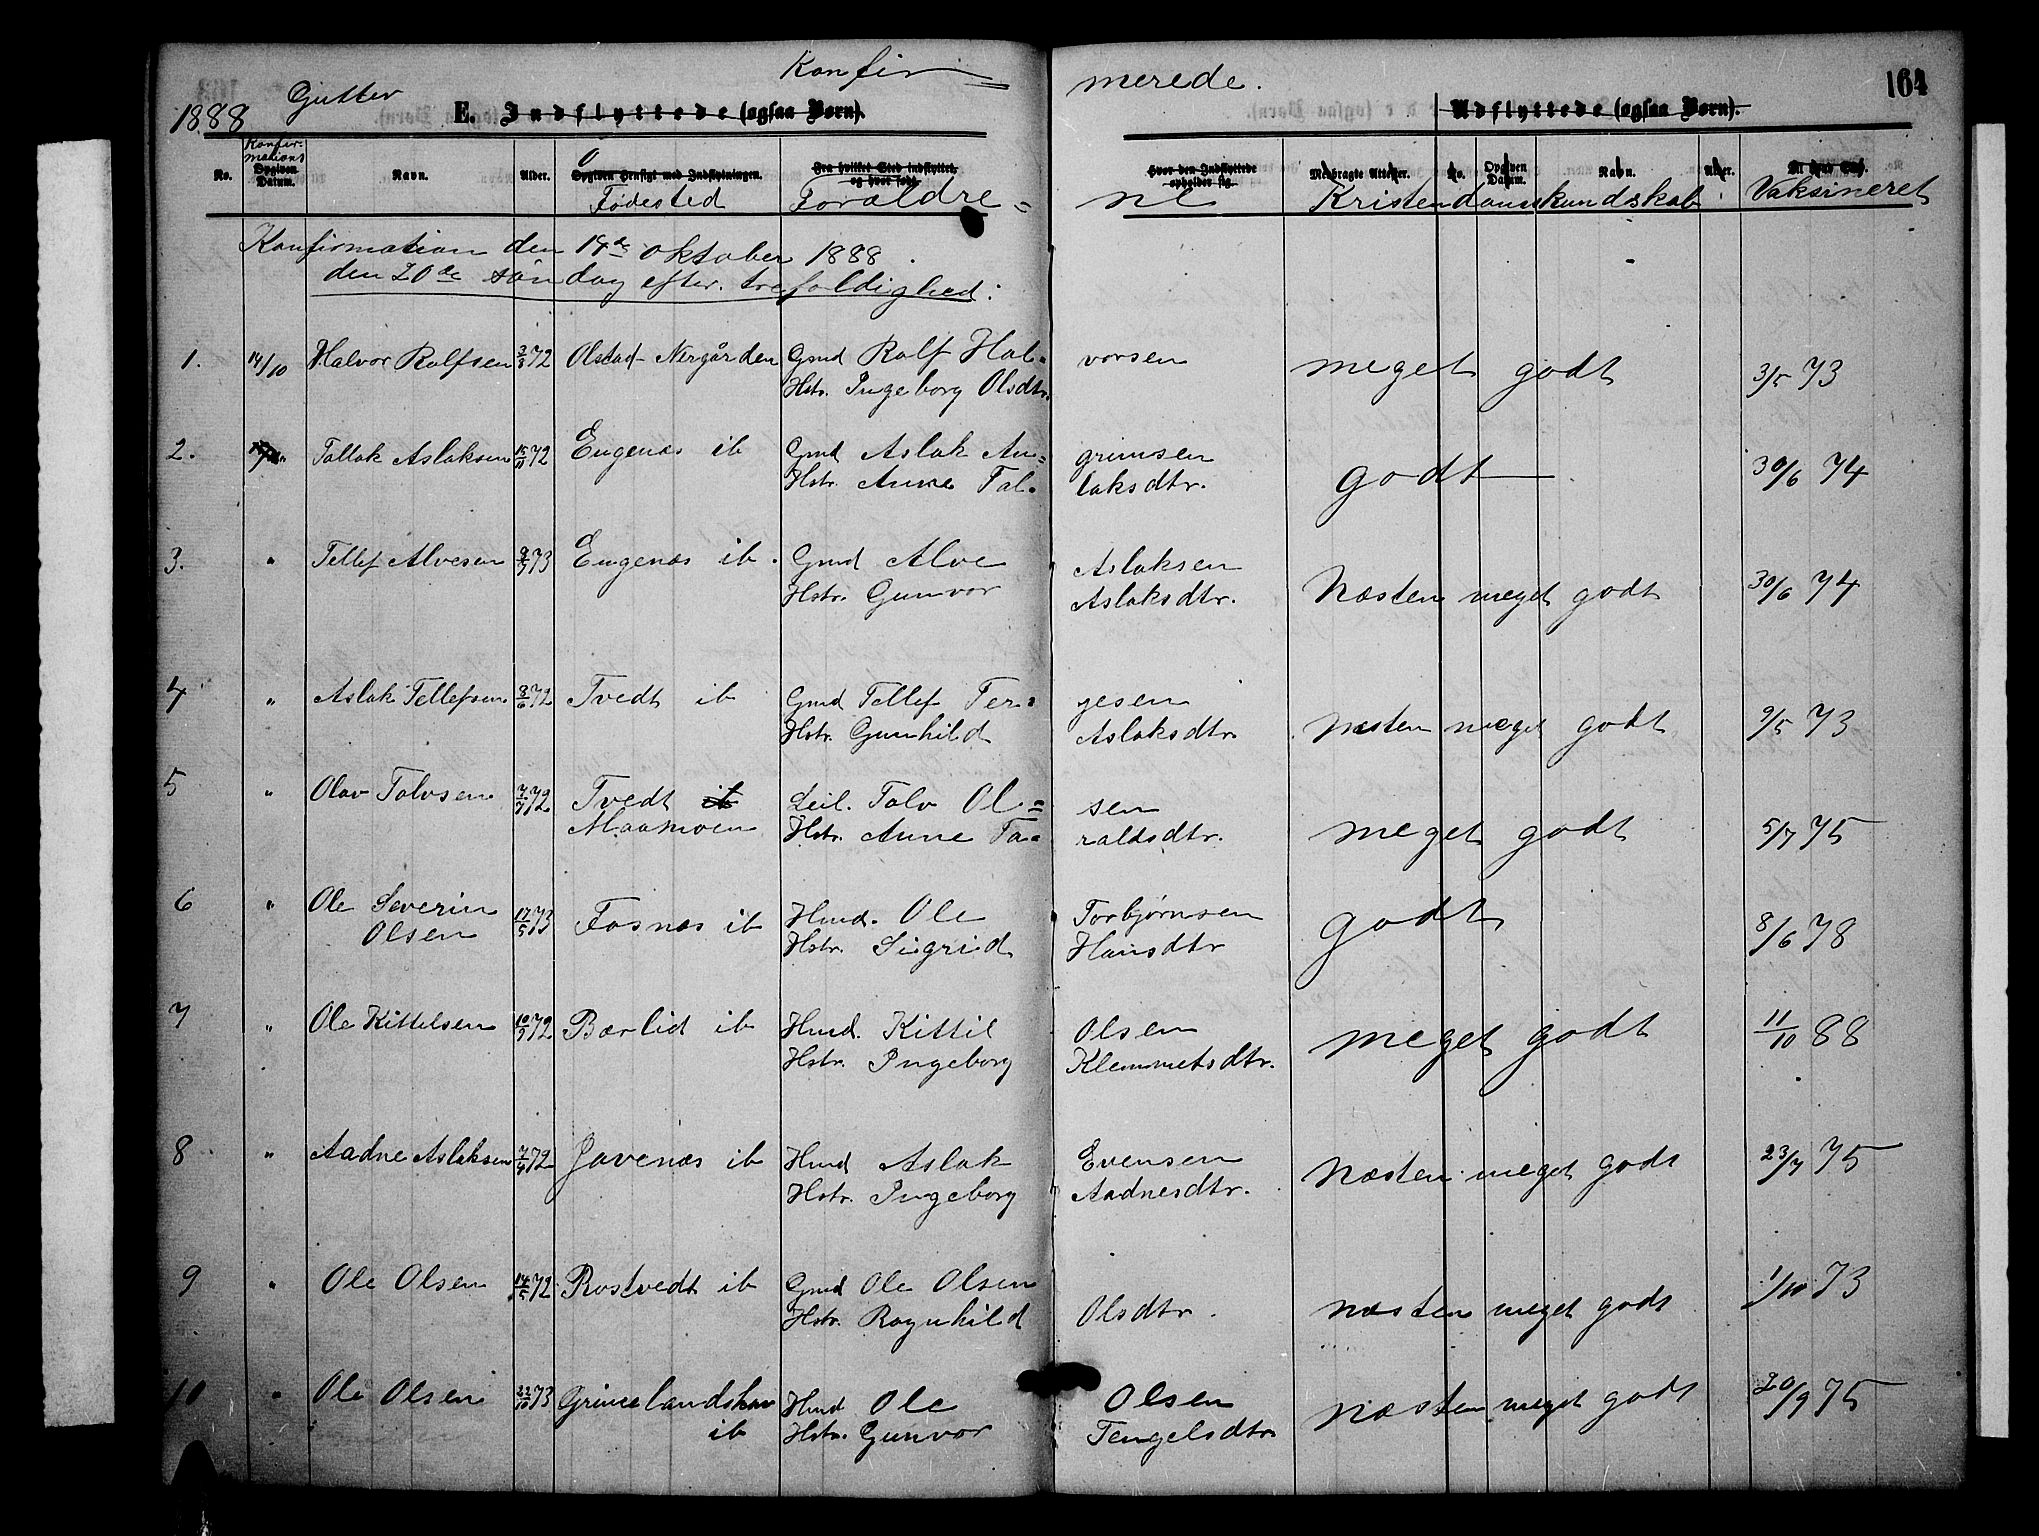 1888 Gutter Konfir= merede. 164
E. Indflyttede (ogsaa Børn). Udflyttede (ogsaa Børn).
No. Konfir-mations Opgiven Datum. Navn. Alder. Opgiven Hensigt med Indflytningen. Fødested Fra hvilket Sted indflyttet og hvor født. Forældre= ne Hvor den Indflyttede opholder sig. Medbragte Attester. No. Opgiven Datum. Navn. Alder. Kristendomskundskab Vaksineret
Konfirmation den 14de oktober 1888.
den 20de søndag efter trefoldighed:
1. 14/10 Halvor Rolfsen 3/3 72 Olstad Nergården Gmd Rolf Hal= vorsen meget godt 3/5 73
Hstr. Ingeborg Olsdtr.
2. Tallak Aslaksen 15/11 72 Eugenæs ib Gmd Aslak An= grimsen godt 30/6 74
Hstr. Anne Tal- laksdtr.
3. " Tellef Alvesen 73 Eugenæs ib. Gmd Alve Aslaksen Næsten meget godt 30/6 74
Hstr. Gunvor Aslaksdtr.
4 " Aslak Tellefsen 8/6 72 Tvedt ib Gmd Tellef Ter= jesen Næsten meget godt 9/5 73
Hstr. Gunhild Aslaksdtr
5 " Olav Talvsen 7/7 72 Tvedt ib Leil. Talv Ol= sen meget godt 5/7 75
Maamoen Hstr. Anne Ta- raldsdtr.
6 " Ole Severin 17/5 73 Fosnæs ib Hmd. Ole Torbjørnsen godt 8/6 78
Olsen Hstr. Sigrid Hansdtr
7 " Ole Kittelsen 10/9 72 Bærlid ib Hmd. Kittil Olsen meget godt 11/10 88
Hstr. Ingeborg Klemmetsdtr.
8 " Aadne Aslaksen 7/4 72 Javenæs ib Hmd Aslak Evensen Næsten meget godt 23/7 75
Hstr. Ingeborg Aadnesdtr.
9 " Ole Olsen 14/5 72 Rostvedt ib Gmd Ole Olsen næsten meget godt 1/10 73
Hstr. Ragnhild Olsdtr.
10 " Ole Olsen 22/10 73 Grimelandshav Hmd Ole Olsen næsten meget godt 20/9 75
ib Hstr. Gunvor Tengelsdtr